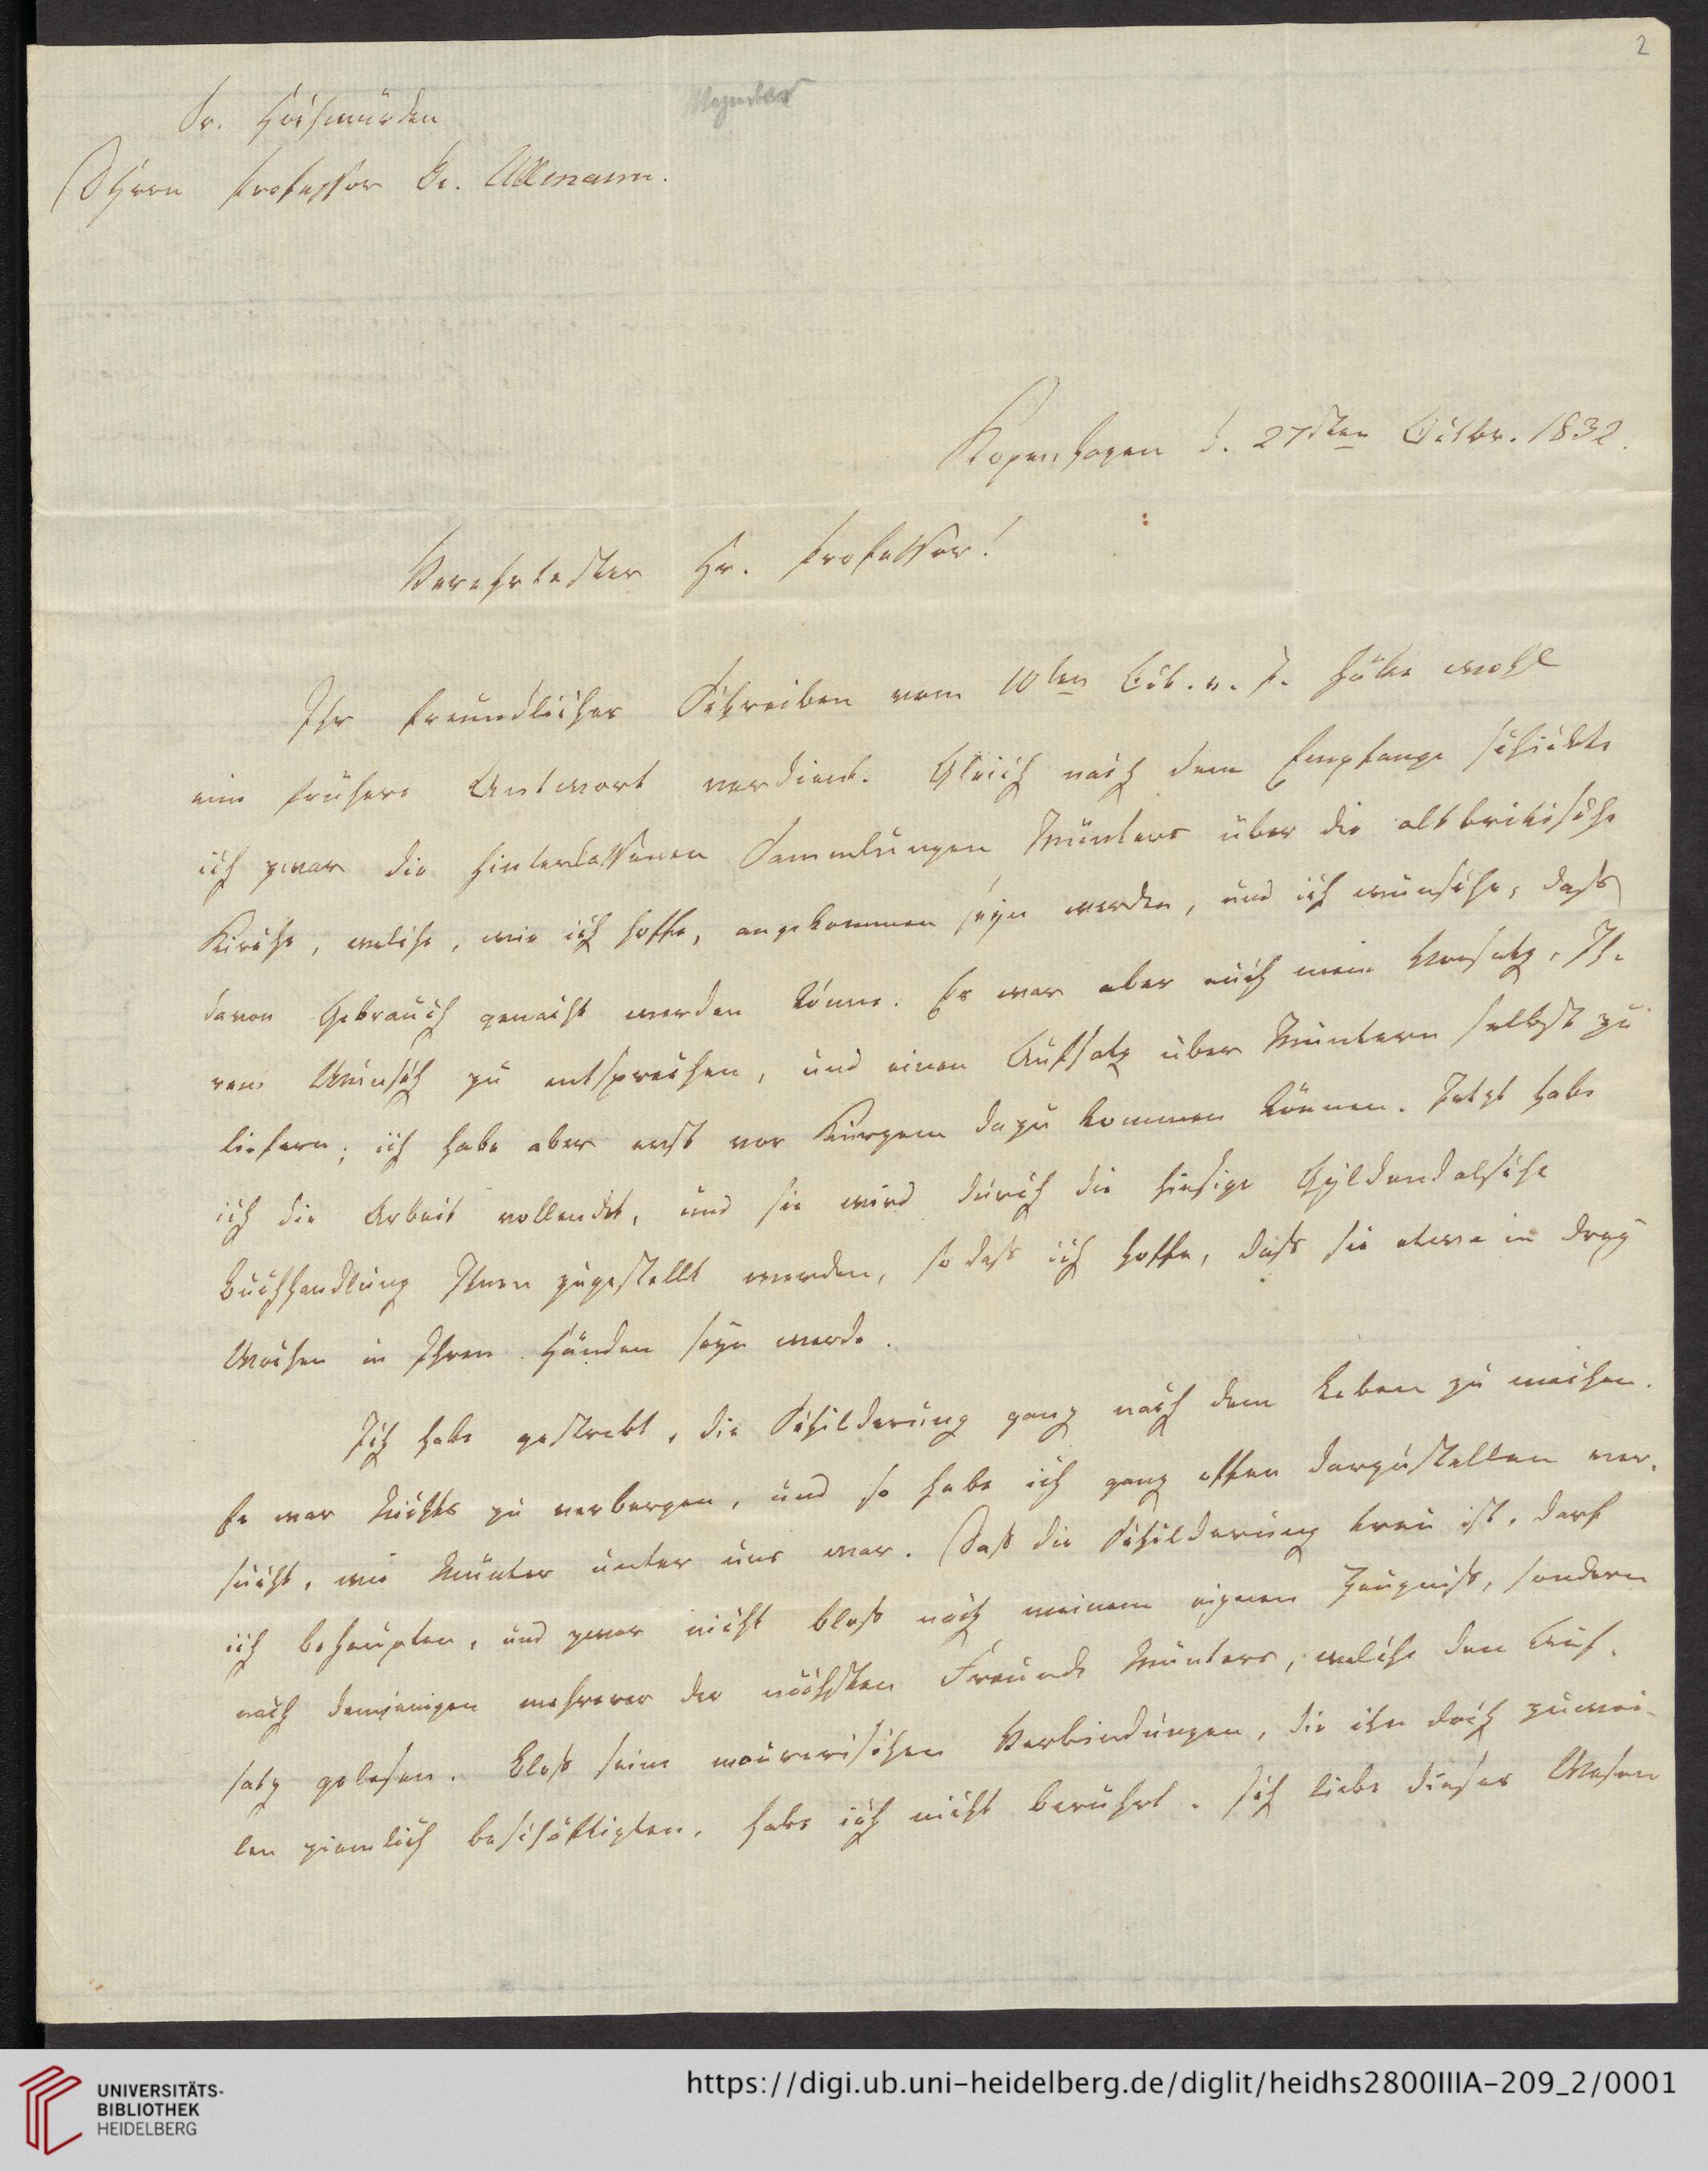 2
Mynster
Sr. Hochwürden
Herrn Professor Dr. Ullmann.
Kopenhagen d. 27sten Octbr. 1832.
Verehrtester Hr. Professor!
Ihr freundliches Schreiben vom 10ten Oct. v. J. hätte wohl
eine frühere Antwort verdient. Gleich nach dem Empfange schickte
ich zwar die hinterlassenen Sammlungen Münters über die altbritische
Kirche, welche, wie ich hoffe, angekommen seyn werden, und ich wünsche, dass
davon Gebrauch gemacht werden könne. Es war aber auch mein Vorsatz, Ih-
rem Wunsch zu entsprechen, und einen Aufsatz über Müntern selbst zu
liefern; ich habe aber erst vor Kurzem dazu kommen können. Jetzt habe
ich die Arbeit vollendet, und sie wird durch die hiesige Gyldendalsche
Buchhandlung Ihnen zugestellt werden, so daß ich hoffe, daß sie etwa in drey
Wochen in Ihren Händen seyn werde.
Ich habe gestrebt, die Schilderung ganz nach dem Leben zu machen.
Es war Nichts zu verbergen, und so habe ich ganz offen darzustellen ver-
sucht, wie Münter unter uns war. Daß die Schilderung treu ist, darf
ich behaupten, und zwar nicht bloß nach meinem eignen Zeugniß, sondern
nach demjenigen mehrerer der nächsten Freunde Münters, welche den Auf-
satz gelesen. Bloß seine maurerischen Verbindungen, die ihn doch zuwei-
len ziemlich beschäftigten, habe ich nicht berührt. Ich liebe dieses Wesen
UNIVERSITÄTS-
BIBLIOTHEK
HEIDELBERG
https://digi.ub.uni-heidelberg.de/diglit/heidhs2800IIIA-209_2/0001